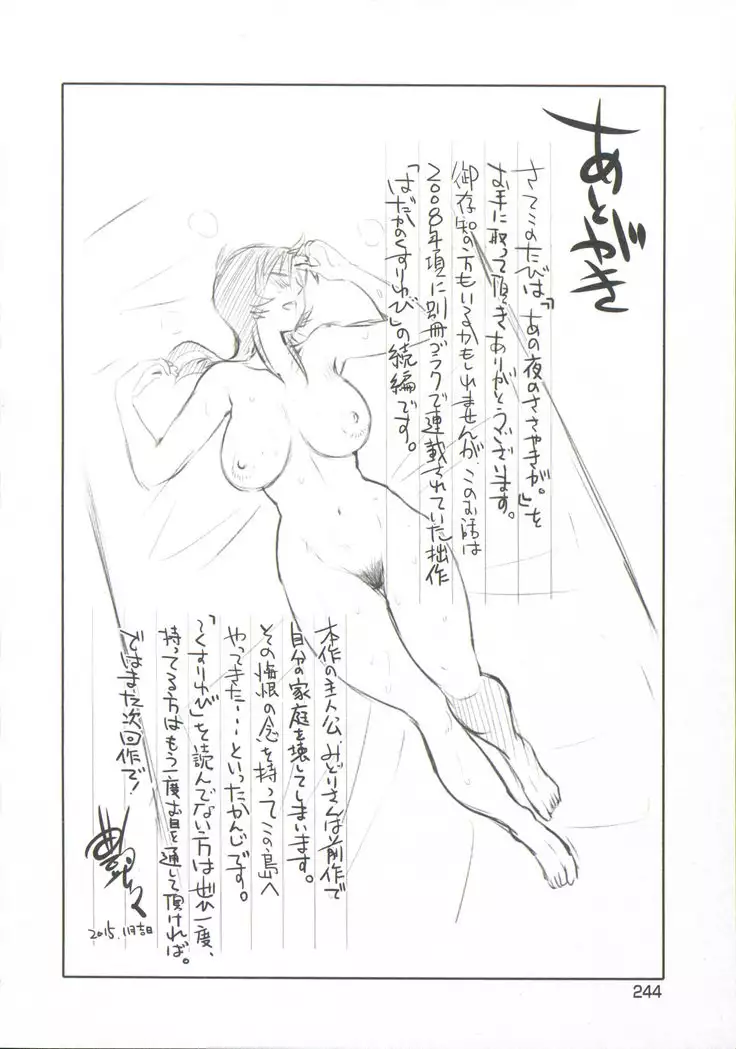 あとがき
さてこのたびは「あの夜のささやきが。」を
お手に取って頂きありがとうございます。
御存知の方もいるかもしれませんが、このお話は
2008年頃に別冊ゴラクで連載されていた拙作
「はだかのくすりゆび」の続編です。
本作の主人公、みどりさんは前作で
自分の家庭を壊してしまいます。
その悔恨の念を持ってこの島へ
やってきた…といったかんじです。
「くすりゆび」を読んでない方はぜひ一度、
持ってる方はもう一度お目を通して頂ければ。
ではまた次回作で!
艶々
2015.11月吉日
244